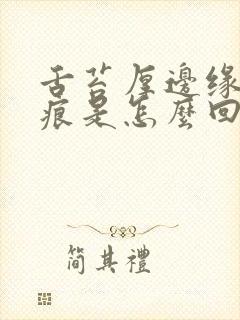 舌苔厚邊緣
痕是怎麼回
簡其禮